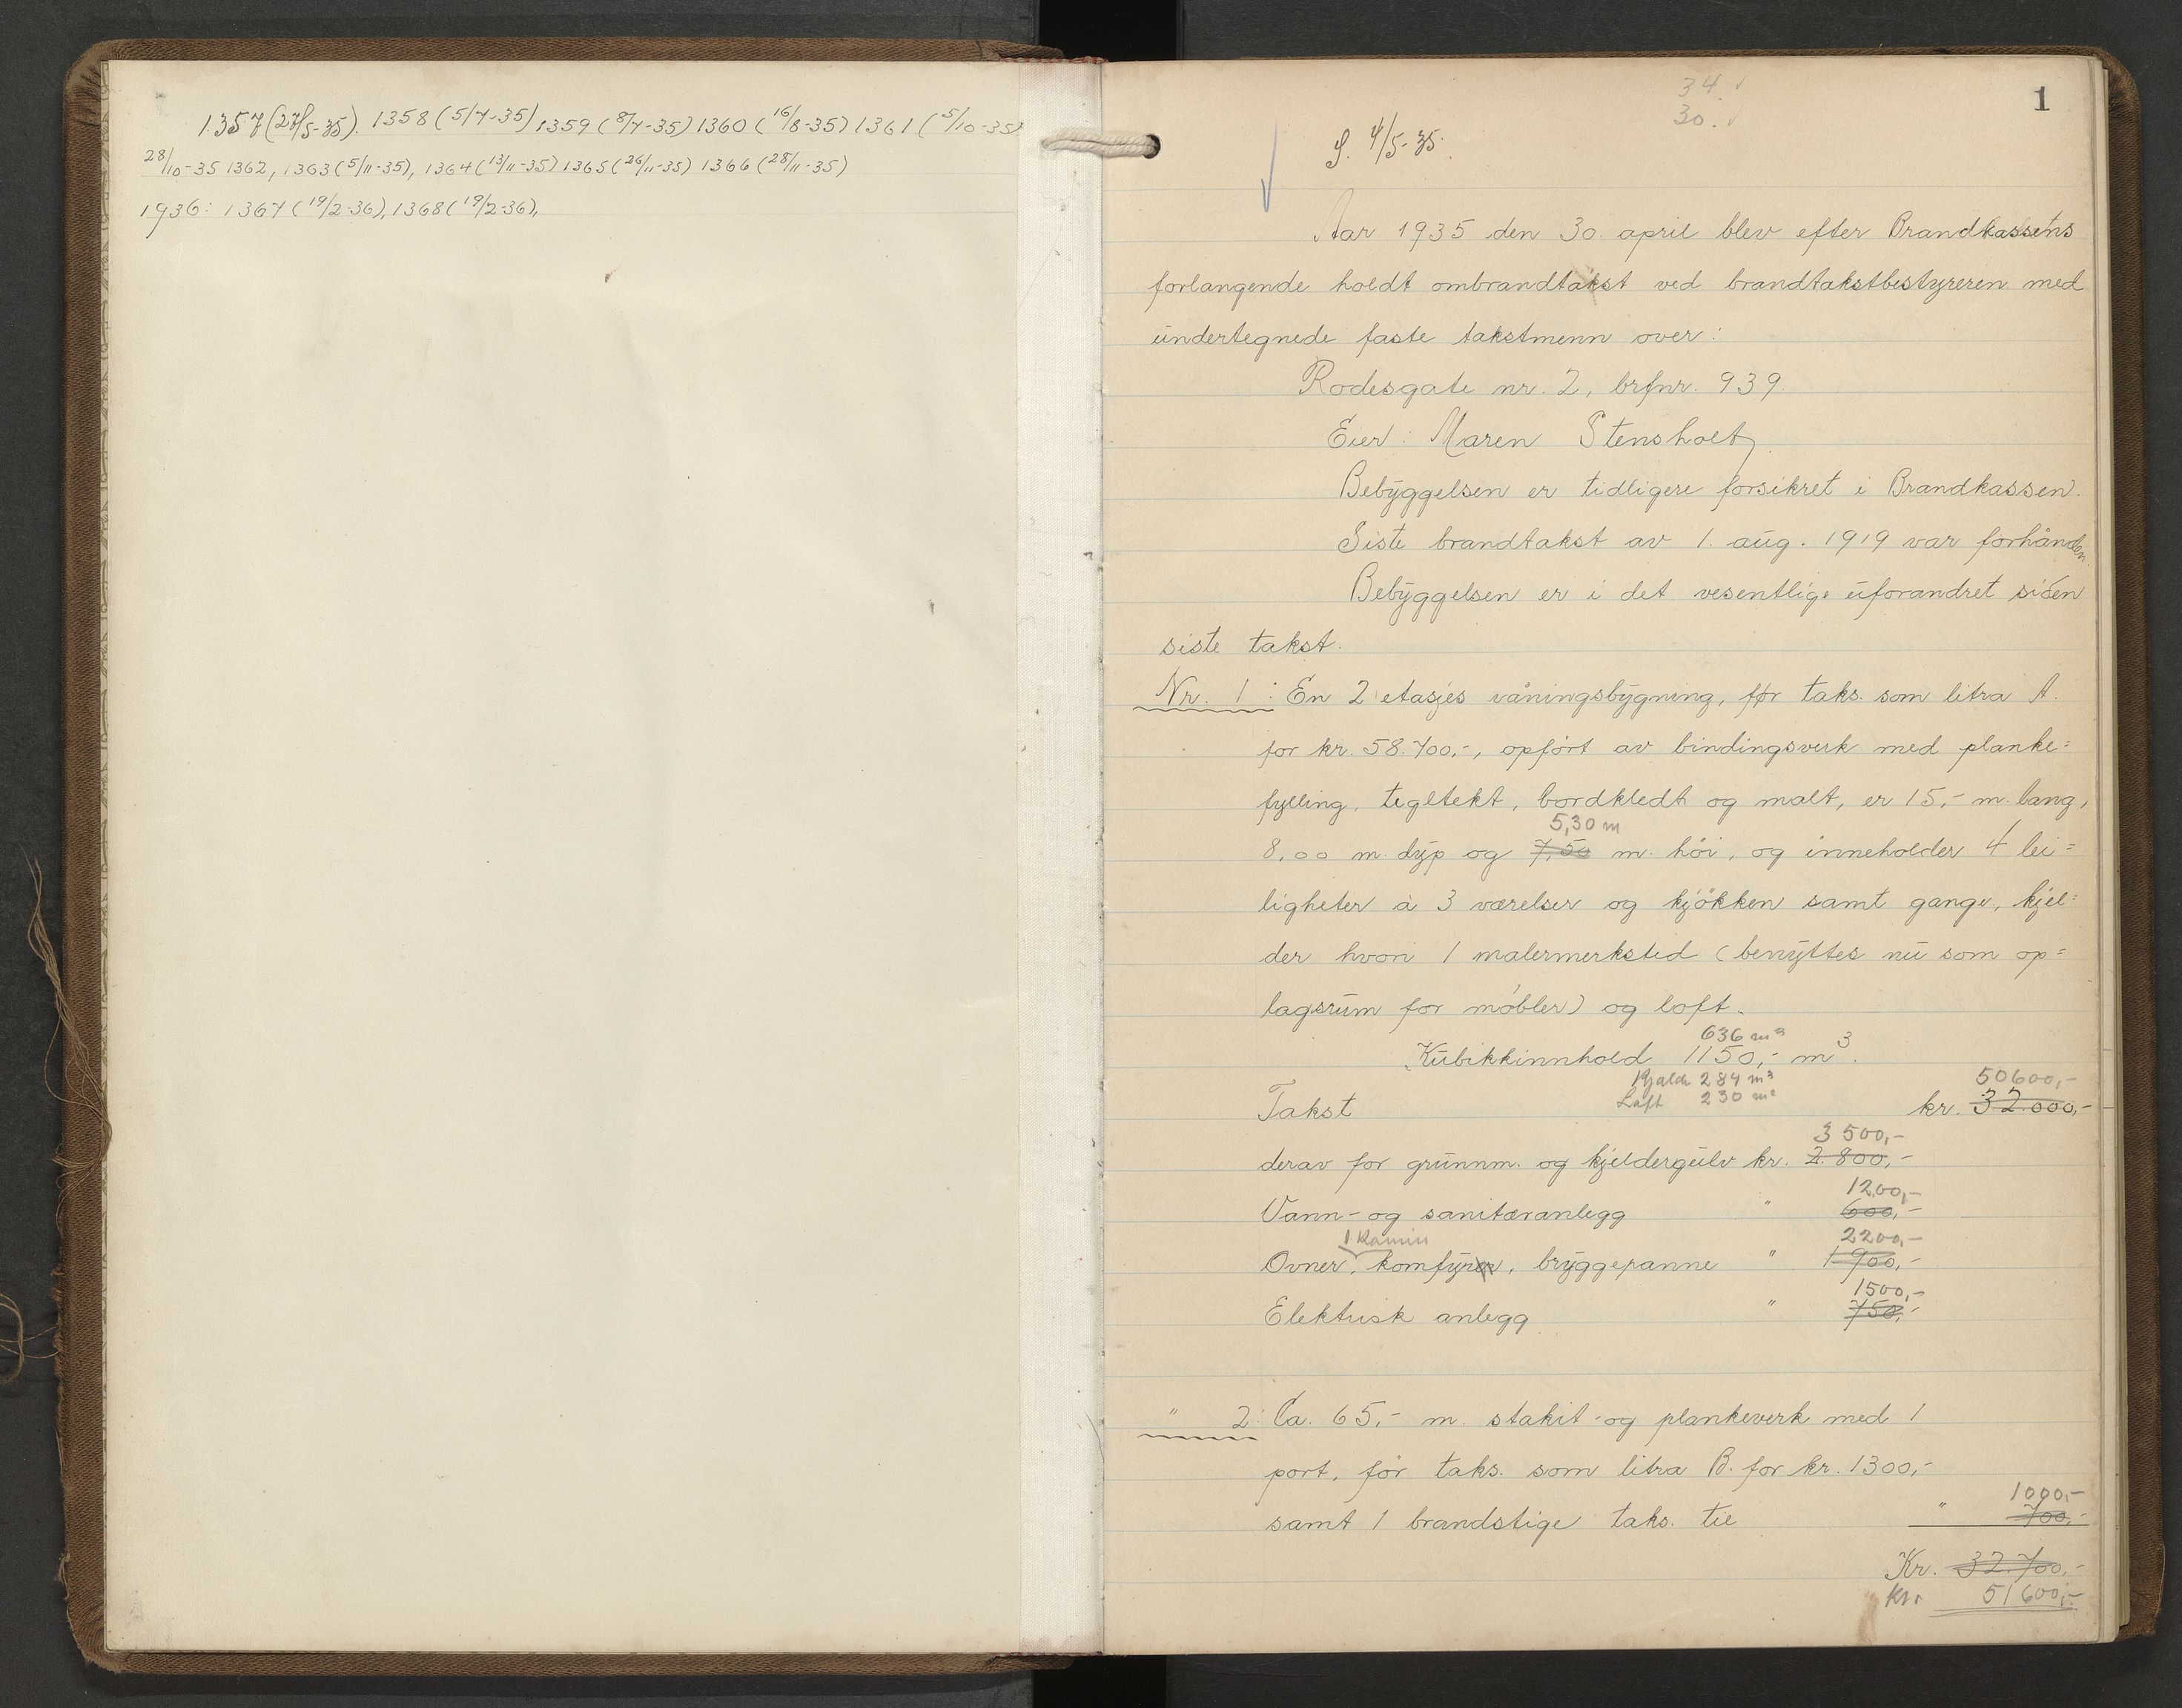 1357 (27/5-35). 1358 (5/7-35) 1359 (8/7-35) 1360 (16/8-35) 1361 (5/10-35)
28/10-35 1362, 1363 (5/11-35), 1364 (13/11-35) 1365 (26/11-35) 1366 (28/11-35)
1936: 1367 (19/2-36), 1368 (19/2-36),
34.
30.
1
S. 4/5-35.
Aar 1935 den 30. april blev efter Brandkassens
forlangende holdt ombrandtakst ved brandtakstbestyreren med
undertegnede faste takstmenn over:
Rodesgate nr. 2, brfnr. 939.
Eier: Maren Stensholt.
Bebyggelsen er tidligere forsikret i Brandkassen.
Siste brandtakst av 1. aug. 1919 var forhånden.
Bebyggelsen er i det vesentlige uforandret siden
siste takst.
Nr. 1: En 2 etasjes våningsbygning, før taks. som litra A.
for kr. 58.700,-, opført av bindingsverk med planke=
fylling, tegltekt, bordkledt og malt, er 15,- m. lang,
5,30 m
8,00 m. dyp og 7,50 m. høi, og inneholder 4 lei=
ligheter à 3 værelser og kjøkken samt gange, kjel=
der hvori 1 malermerksted (benyttes nu som op=
lagsrum for møbler) og loft.
636 m³
Kubikkinnhold 1150,- m³.
Kjeld. 284 m³
Loft 230 m³
50600,-
Takst kr. 32.000,-
3500,-
derav for grunnm. og kjeldergulv kr. 2.800,-
1200,-
Vann- og sanitæranlegg " 600,-
1 Kamin 2200,-
Ovner, komfyrer, bryggepanne " 1900,-
1500,-
Elektrisk anlegg " 750,-
" 2: Ca. 65,- m. stakit- og plankeverk med 1
port, før taks. som litra B. for kr. 1300,-
1000,-
samt 1 brandstige taks. til " 700,-
Kr. 32.700,-
kr. 51600,-